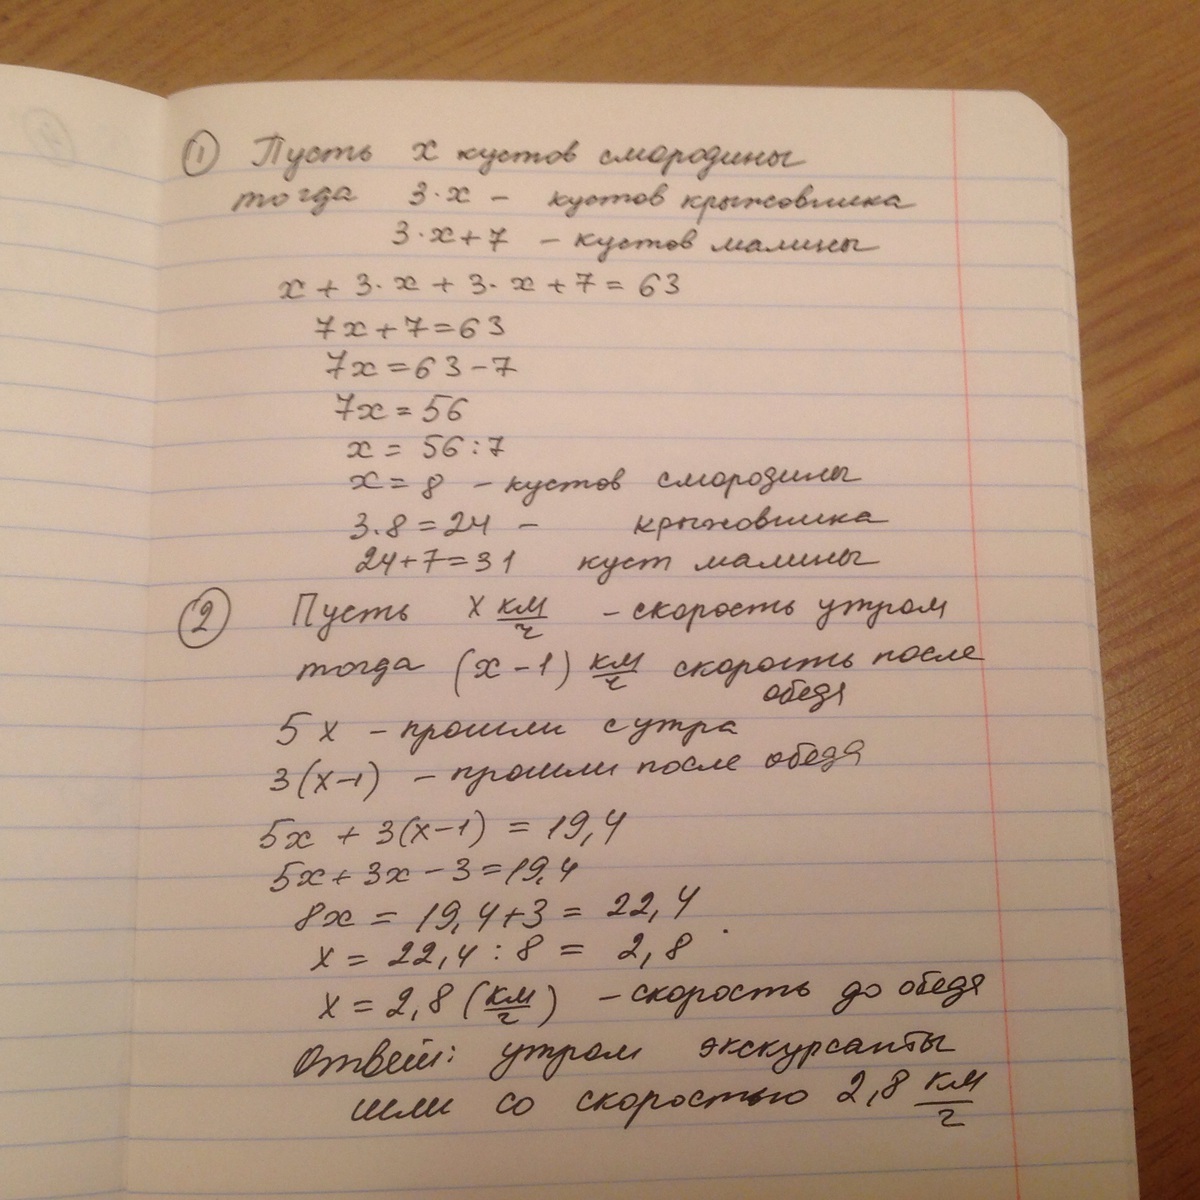 ① Пусть x кустов смородины
тогда 3·x – кустов крыжовника
3·x+7 – кустов малины
x + 3·x + 3·x + 7 = 63
7x+7=63
7x=63-7
7x=56
x= 56:7
x=8 – кустов смородины
3·8=24 – крыжовника
24+7=31 куст малины
② Пусть x км/ч – скорость утром
тогда (x-1) км/ч скорость после
обеда
5x – прошли с утра
3(x-1) – прошли после обеда
5x + 3(x-1) = 19,4
5x+3x-3=19,4
8x = 19,4+3 = 22,4
x = 22,4 : 8 = 2,8
x = 2,8 (км/ч) – скорость до обеда
Ответ: утром экскурсанты
шли со скоростью 2,8 км/ч